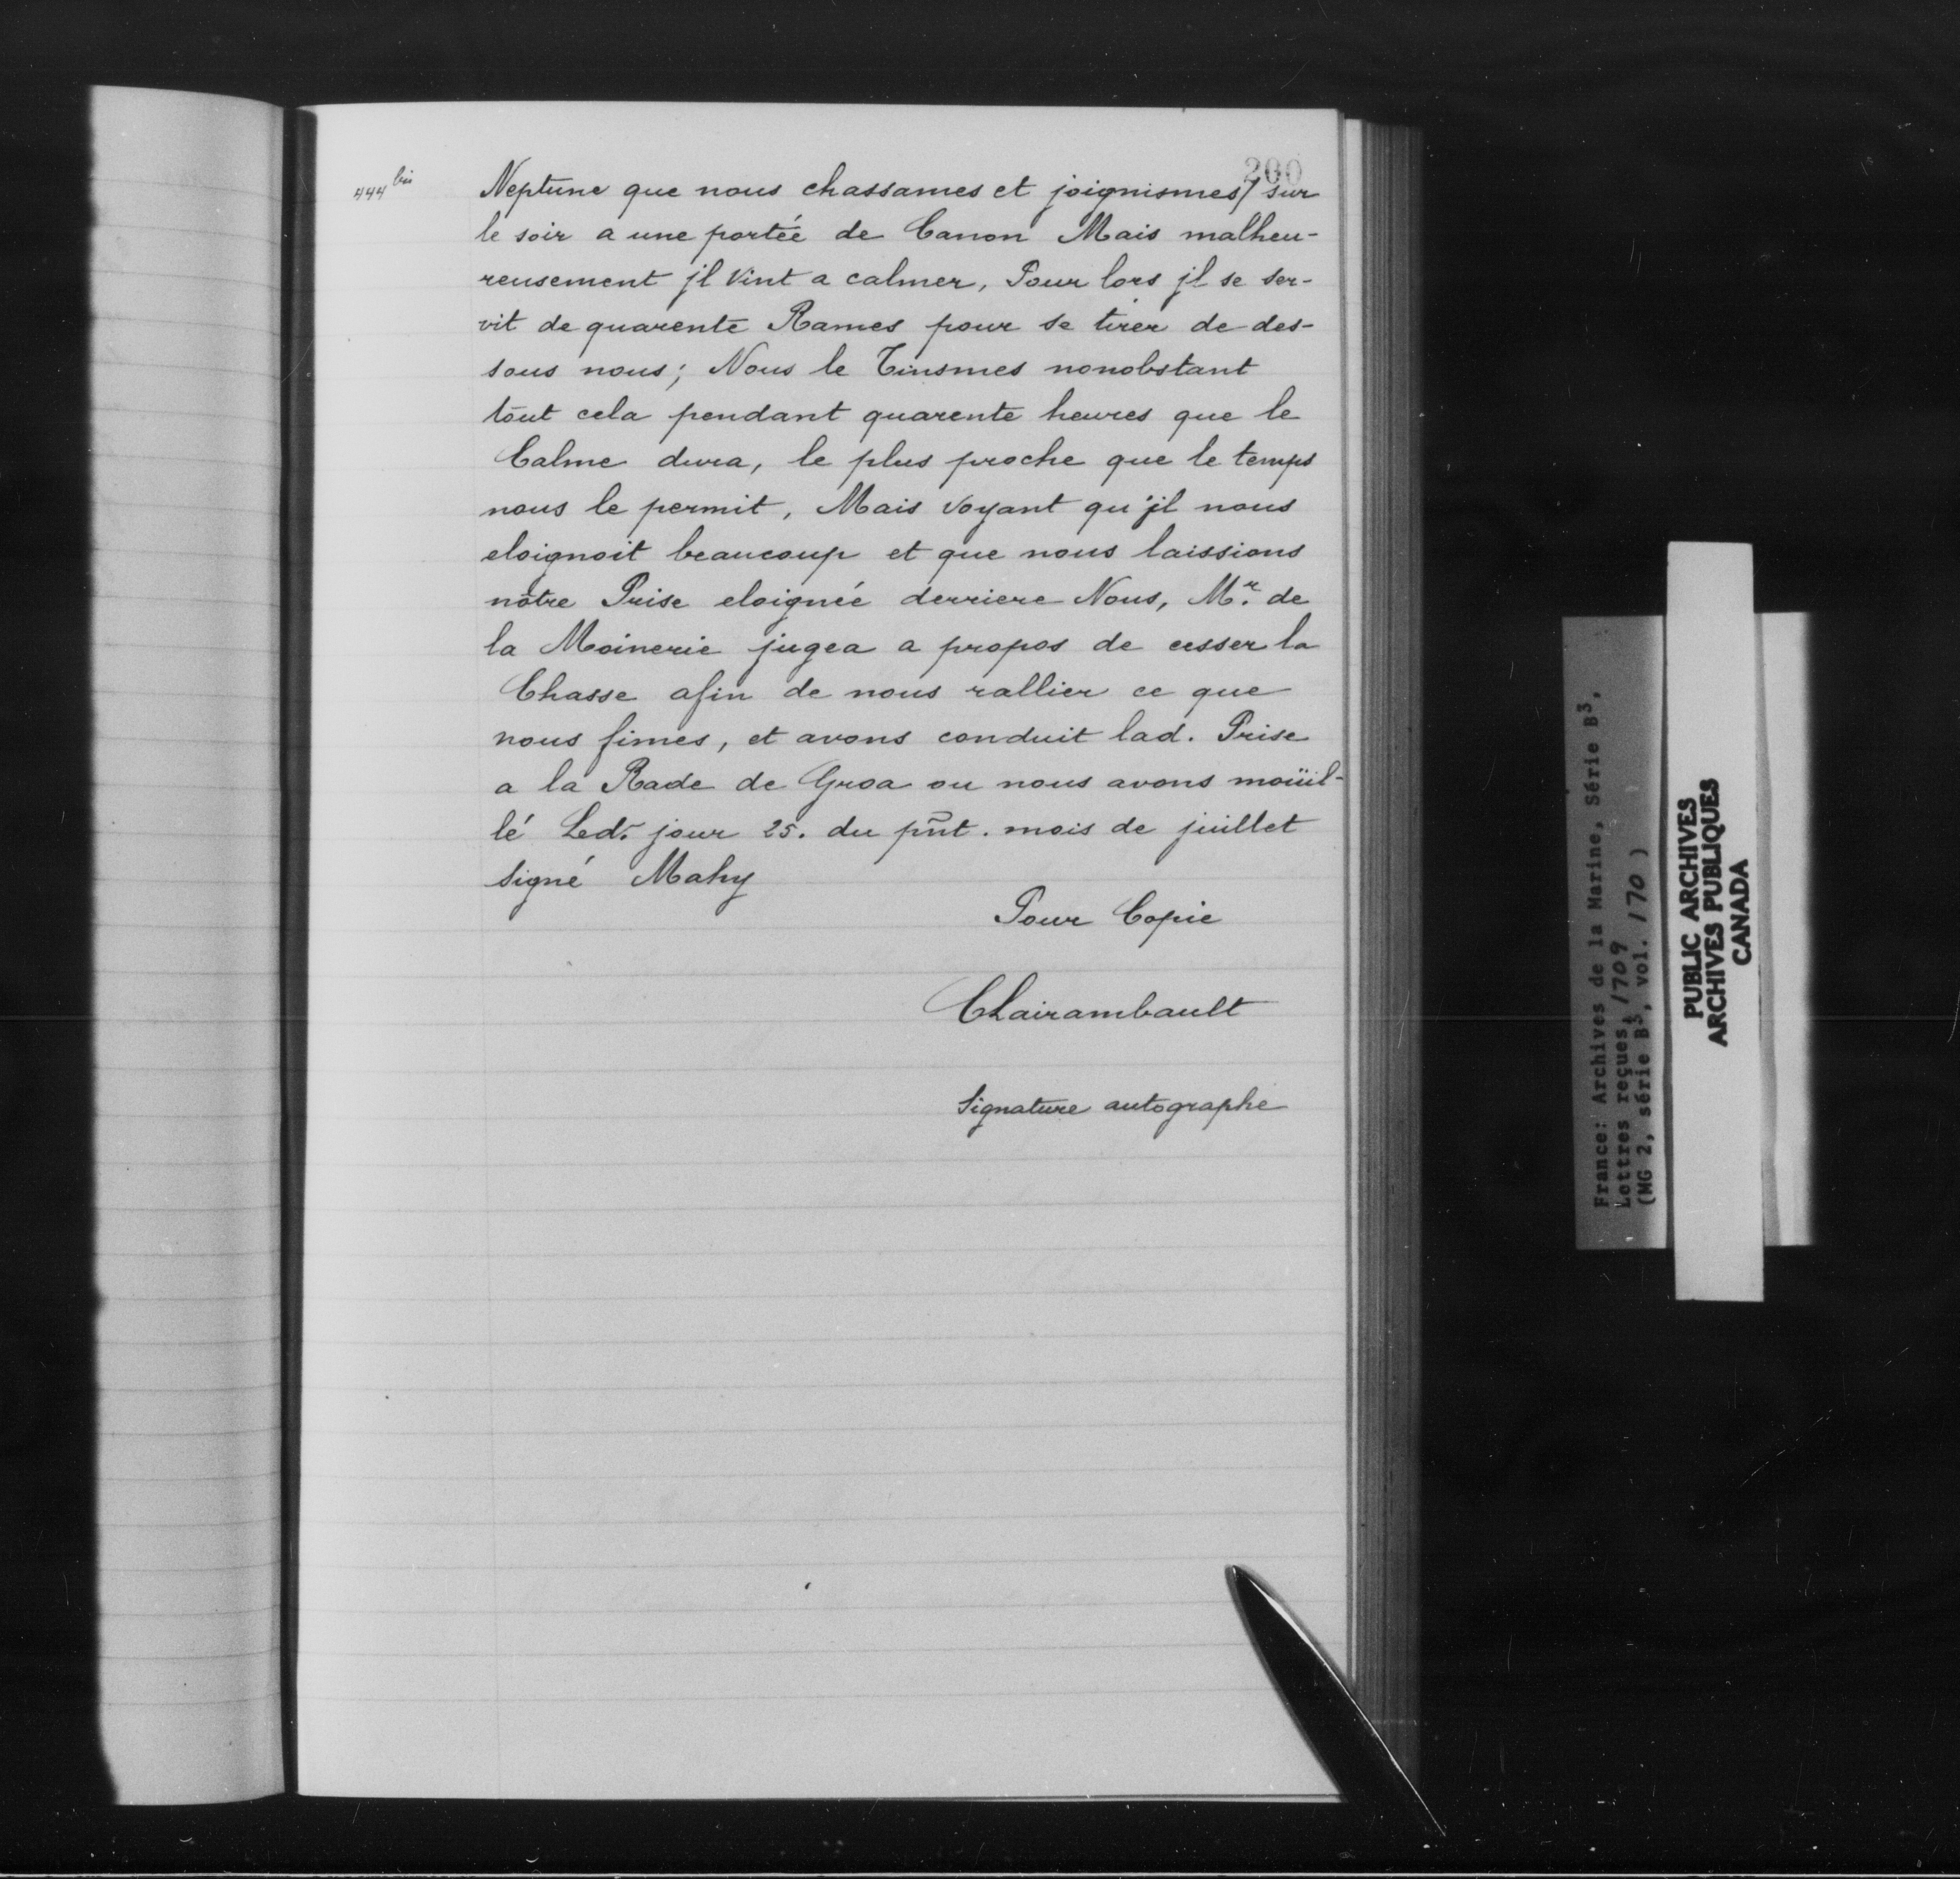 200
444 bis
Neptune que nous chassames et joignismes/ sur
le soir a une portéé de Canon Mais malheu-
reusement jl vint a calmer, Pour lors jl se ser-
vit de quarente Rames pour se tirer de des-
sous nous; Nous le Tinsmes nonobstant
tout cela pendant quarente heures que le
Calme dura, le plus proche que le temps
nous le permit, Mais voyant qu'jl nous
eloignoit beaucoup et que nous laissions
nôtre Prise eloignéé derriere Nous, Mr. de
la Moinerie jugea a propos de cesser la
Chasse afin de nous rallier ce que
nous fimes, et avons conduit lad. Prise
a la Rade de Groa ou nous avons moüil-
lé Led. jour 25. du pñt. mois de juillet
signé Mahy
Pour Copie
Clairambault
Signature autographe
France: Archives de la Marine, Série B3,
Lettres reçues, 1709
(MG 2, série B3, vol. 170)
PUBLIC ARCHIVES
ARCHIVES PUBLIQUES
CANADA